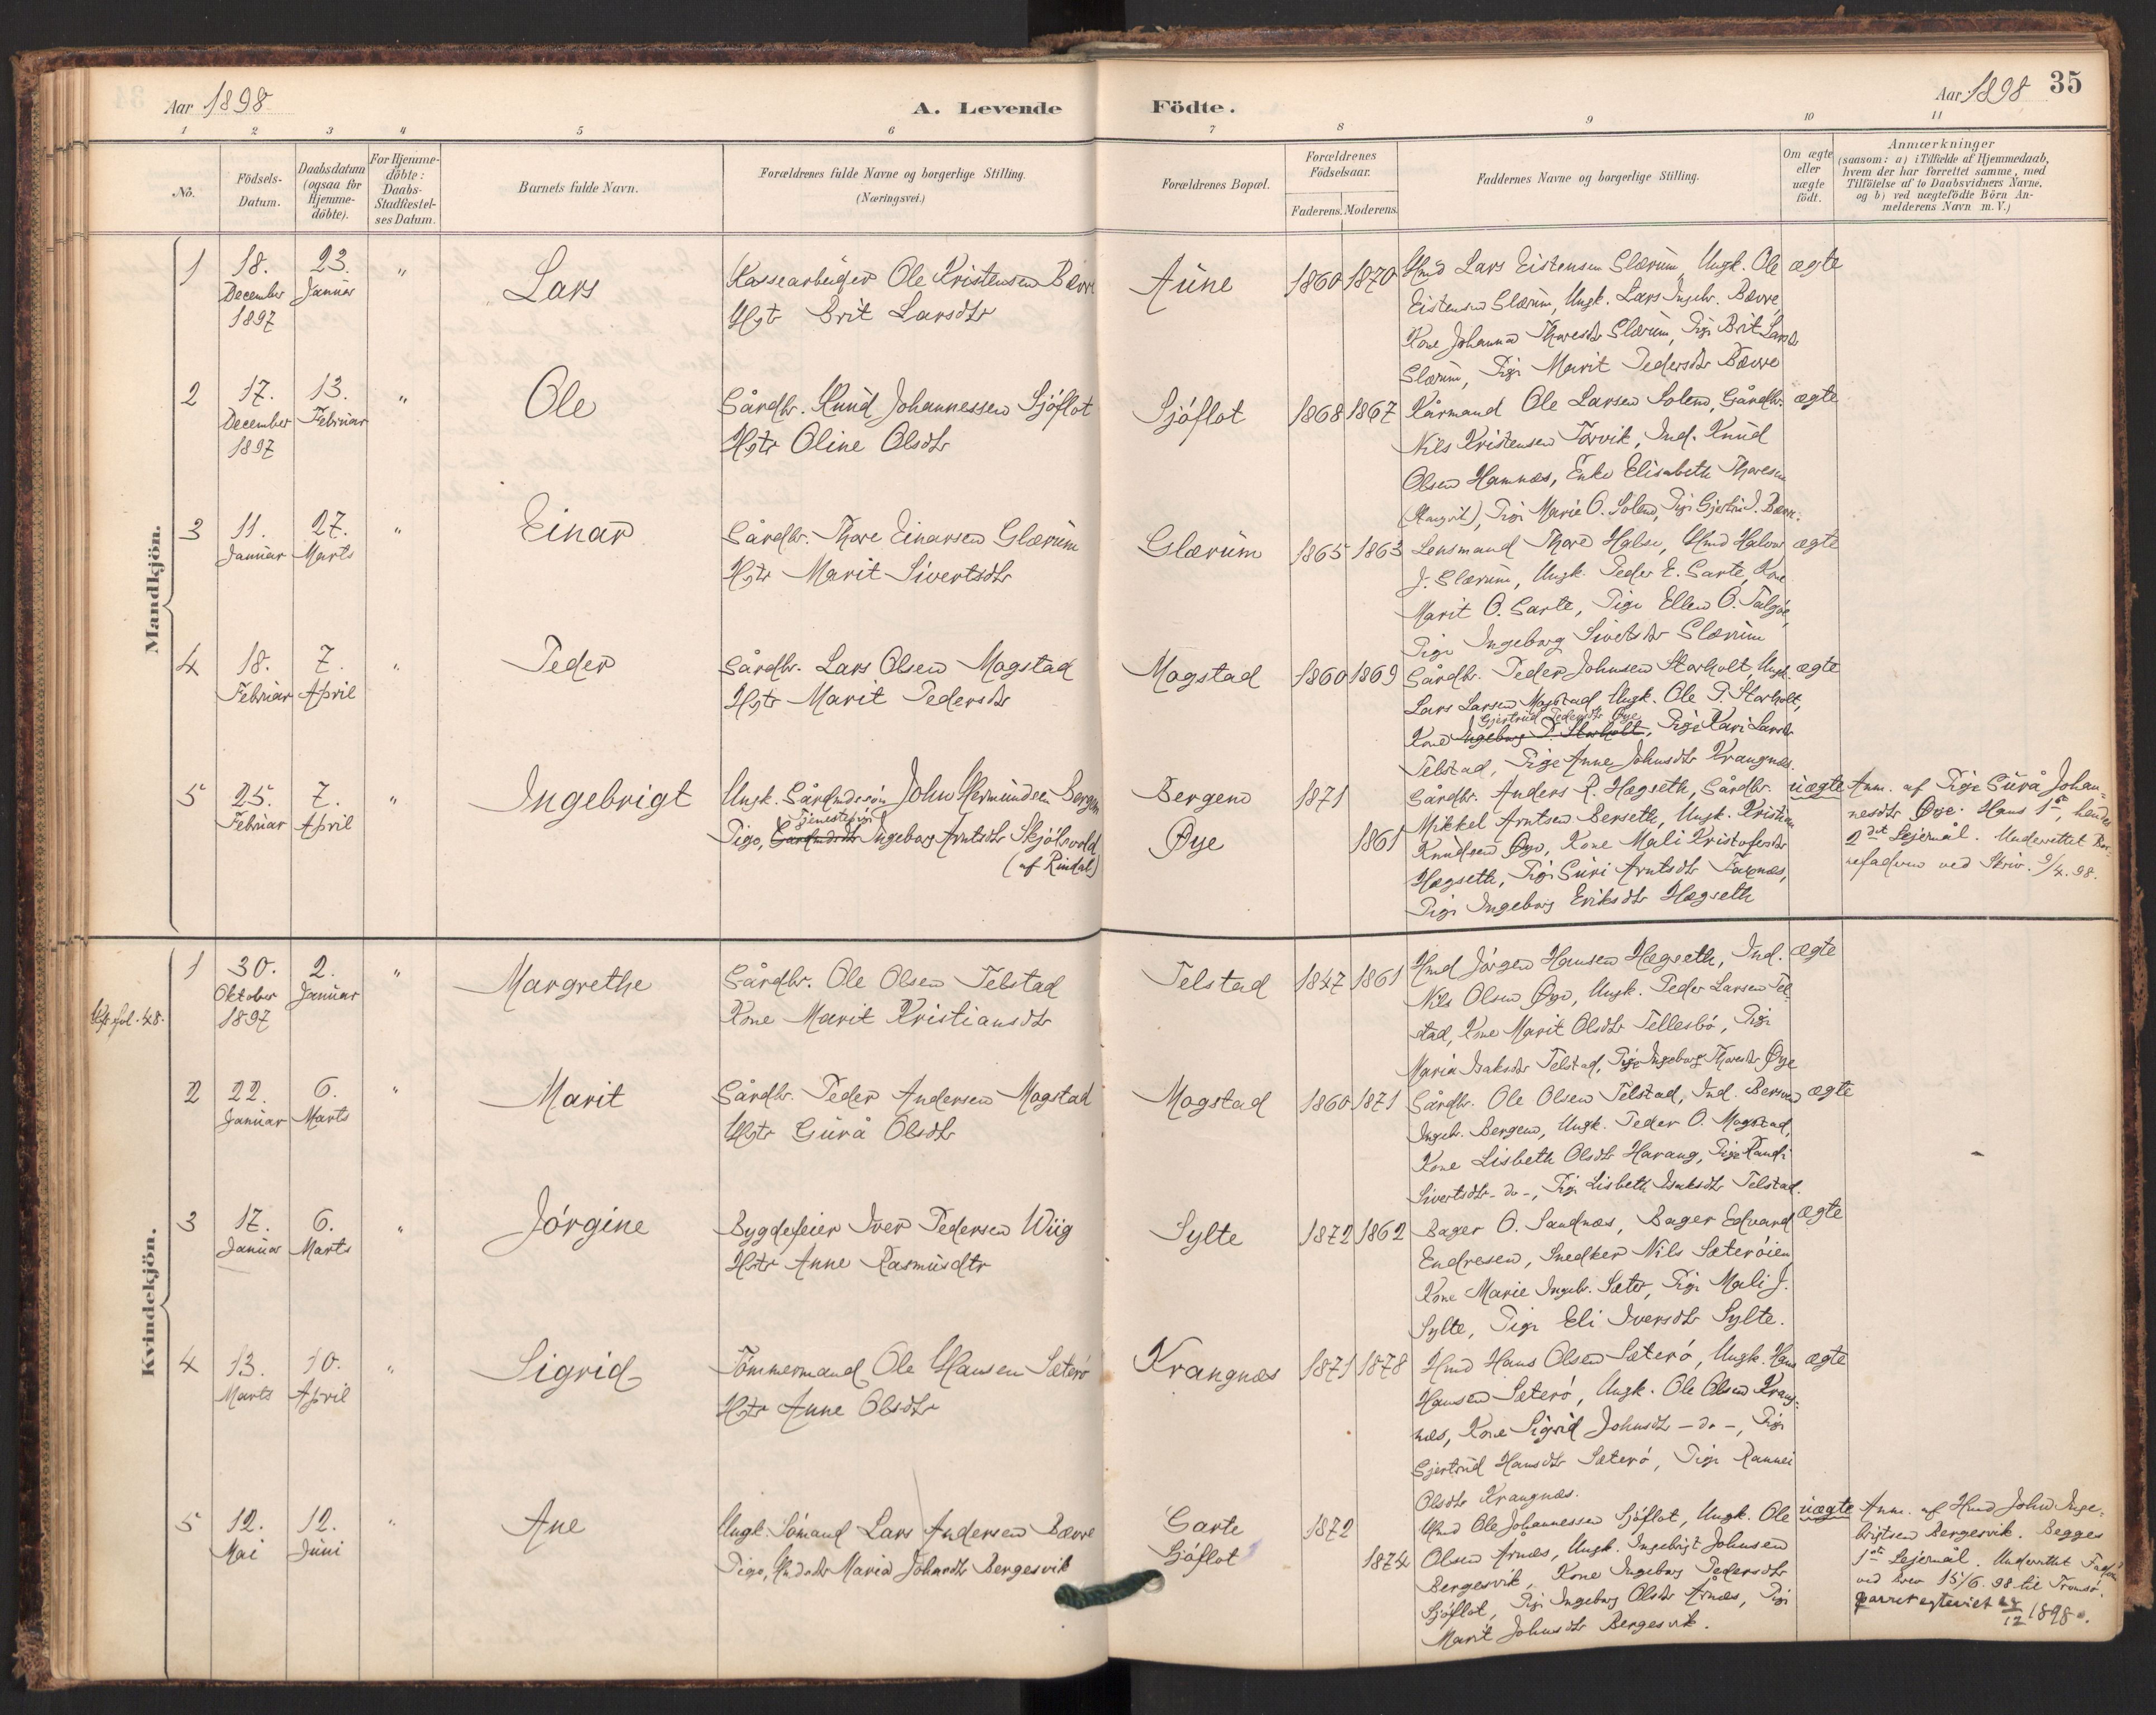 Aar 1898
A. Levende
Födte.
Aar 1898
35
1 2 3 4 5 6 7 8 9 10 11
No.
Födsels-
Datum.
Daabsdatum
(ogsaa for
Hjemme-
döbte).
For Hjemme-
döbte:
Daabs-
Stadfæstel-
ses Datum.
Barnets fulde Navn.
Forældrenes fulde Navne og borgerlige Stilling.
(Næringsvei.)
Forældrenes Bopæl.
Forældrenes
Födselsaar.
Faderens. Moderens.
Faddernes Navne og borgerlige Stilling.
Om ægte
eller
uægte
födt.
Anmærkninger
(saasom: a) i Tilfælde af Hjemmedaab,
hvem der har forrettet samme, med
Tilföielse af to Daabsvidners Navne,
og b) ved uægtefödte Börn An-
melderens Navn m. V.)
Mandkjön.
1
18.
December
1897
23.
Januar
"
Lars
Kassearbeider Ole Kristensen Bævre
Hstr Brit Larsdtr
Aune
1860 1870
Hmd Lars Eistensen Glærum, Ungk. Ole
Eistensen Glærum, Ungk. Lars Ingebr. Bævre,
Kone Johanna Thoresdtr Glærum, Pige Brit Larsdtr
Glærum, Pige Marit Pedersdtr Bævre
ægte
2
17.
December
1897
13.
Februar
"
Ole
Gårdbr. Knud Johannessen Sjöflot
Hstr Oline Olsdtr
Sjöflot
1868 1867
Kårmand Ole Larsen Solem, Gårdbr.
Nils Kristensen Torvik, Ind. Knud
Olsen Hamnæs, Enke Elisabeth Thoresen
Pige Marie O. Solem, Pige Gjertru J. Bævre.
ægte
3
11.
Januar
27.
Marts
"
Einar
Gårdbr. Thore Einarsen Glærum
Hstr Marit Sivertsdtr
Glærum
1865 1863
Lensmand Thore Halse, Hmd Halvor
J. Glærum, Ungk. Peder E. Garte, Kone
Marit O. Garte, Pige Ellen O. Talgøe,
Pige Ingeborg Sivertsdtr Glærum
ægte
4
18.
Februar
7.
April
"
Peder
Gårdbr. Lars Olsen Mogstad
Hstr Marit Pedersdtr
Mogstad
1860 1869
Gårdbr. Peder Johnsen Storholt, Ungk.
Lars Larsen Mogstad, Ungk. Ole P. Storholt,
Gjertrud Pedersdtr Øye
Kone Ingeborg P. Storholt, Pige Kari Larsdtr
Telstad, Pige Anne Johnsdtr Krangnæs.
ægte
5
25.
Februar
7.
April
"
Ingebrigt
Ungk. Gårdmdssön John Hermundsen Bergem
Tjenestepige
Pige, Gårdmdsdtr Ingeborg Arntsdtr Skjölsvold
(af Rindal)
Bergem
Øye
1871
1861
Gårdbr. Anders R. Hægseth, Gårdbr.
Mikkel Arntsen Berseth, Ungk. Kristian
Knudsen Øye, Kone Mali Kristofersdtr
Hægseth, Pige Guri Arntsdtr Faxnæs,
Pige Ingeborg Eriksdtr Hægseth
uægte
Anm. af Pige Gurå Johan-
nesdtr Øye. Hans 1ste, hendes
2det Lejermål. Underrettet Bar-
nefaderen ved Skriv. 9/4. 98.
Kvindekjön.
1
30.
Oktober
1897
2.
Januar
"
Margrethe
Gårdbr. Ole Olsen Telstad
Kone Marit Kristiansdtr
Telstad
1847 1861
Hmd Jörgen Hansen Hægseth, Ind.
Nils Olsen Øye, Ungk. Peder Larsen Tel-
stad, Kone Marit Olsdtr Tellesbö, Pige
Maria Isaksdtr Telstad, Pige Ingeborg Thoresdtr Øye
ægte
2
22.
Januar
6.
Marts
"
Marit
Gårdbr. Peder Andersen Mogstad
Hstr Gurå Olsdtr
Mogstad
1860 1871
Gårdbr. Ole Olsen Telstad, Ind.
Ingebr. Bergem, Ungk. Peder O. Mogstad,
Kone Lisbeth Olsdtr Harang, Pige Randi
Sivertsdtr - do -, Pige Lisbeth Isaksdtr Telstad.
ægte
3
17.
Januar
6.
Marts
"
Jörgine
Bygdefeier Iver Pedersen Wiig
Hstr Anne Rasmusdtr
Sylte
1872 1862
Bager O. Sandnæs, Bager Edvard
Endresen, Snedker Nils Sæteröien
Kone Marie Ingebr. Sæter, Pige Mali J.
Sylte, Pige Eli Iversdtr Sylte.
ægte
4
13.
Marts
10.
April
"
Sigrid
Tömmermand Ole Hansen Sæterö
Hstr Anne Olsdtr
Krangnæs
1871 1878
Hmd Hans Olsen Sæterö, Ungk. Hans
Hansen Sæterö, Ungk. Ole Olsen Krang-
næs, Kone Sigrid Johnsdtr - do -, Pige
Gjertrud Hansdtr Sæterö, Pige Rannei
Olsdtr Krangnæs.
ægte
5
12.
Mai
12.
Juni
"
Ane
Ungk. Sömand Lars Andersen Bævre
Pige, Hmdsdtr Maria Johnsdtr Bergesvik
Garte
Sjöflot
1872
1874
Hmd Ole Johannessen Sjöflot, Ungk. Ole
Olsen Årnæs, Ungk. Ingebrigt Johnsen
Bergesvik, Kone Ingeborg Pedersdtr
Sjöflot, Pige Ingeborg Olsdtr Årnæs, Pige
Marit Johnsdtr Bergesvik.
uægte
Anm. af Hmd John Inge-
brigtsen Bergesvik. Begges
1ste Lejermål. Underrettet Faderen
ved Brev 15/6. 98 til Tromsö.
Parret egteviet 1898.